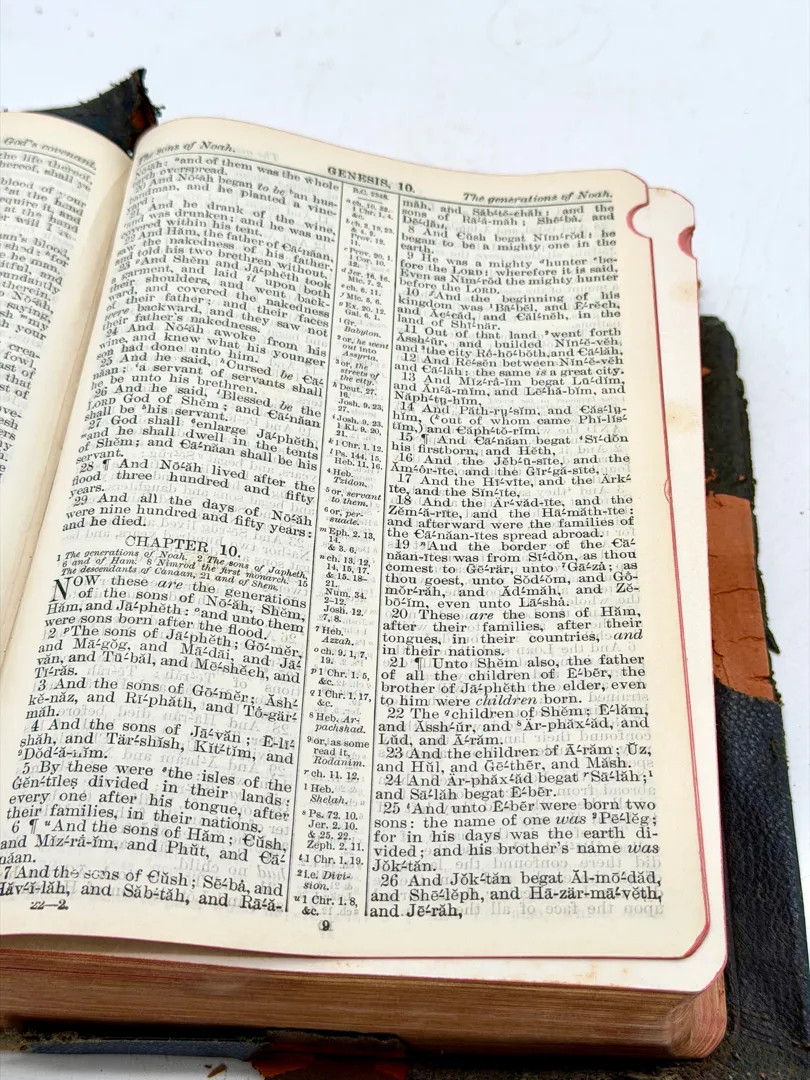 God's covenant.
the life thereof,
hereof, shall ye
blood of your
at the hand
equire it, and
at the hand
er will I
an's blood
shed: for
an.
itful, and
undantly
therein.
Nō´ăh,
saying,
sh my
h you
crea-
fowl
ast of
that
st of
The sons of Noah.
GENESIS, 10.
The generations of Noah.
Nōʹăh: ᵃand of them was the whole
earth overspread.
20 And Nōʹăh began to be an hus-
bandman, and he planted a vine-
yard:
21 And he drank of the wine,
and was drunken; and he was un-
covered within his tent.
22 And Hăm, the father of Єāʹnăan,
saw the nakedness of his father,
and told his two brethren without.
23 And Shĕm and Jāʹphĕth took
a garment, and laid it upon both
their shoulders, and went back-
ward, and covered the nakedness
of their father; and their faces
were backward, and they saw not
their father's nakedness.
24 And Nōʹăh awoke from his
wine, and knew what his younger
son had done unto him.
25 And he said, Cursed be Єāʹ-
năan; a servant of servants shall
he be unto his brethren.
26 And he said, Blessed be the
LORD God of Shĕm; and Єāʹnăan
shall be his servant.
27 God shall enlarge Jāʹphĕth,
and he shall dwell in the tents
of Shĕm; and Єāʹnăan shall be his
servant.
28 ¶ And Nōʹăh lived after the
flood three hundred and fifty
years.
29 And all the days of Nōʹăh
were nine hundred and fifty years:
and he died.
CHAPTER 10.
1 The generations of Noah. 2 The sons of Japheth,
6 and of Ham. 8 Nimrod the first monarch. 15
The descendants of Canaan, 21 and of Shem.
NOW these are the generations
of the sons of Nōʹăh, Shĕm,
Hăm, and Jāʹphĕth: ᵒand unto them
were sons born after the flood.
2 ᵖThe sons of Jāʹphĕth; Gōʹmĕr,
and Māʹgŏg, and Mādʹāi, and Jāʹ-
văn, and Tūʹbăl, and Mēʹshĕch, and
Tīʹrăs.
3 And the sons of Gōʹmĕr; Ăshʹ-
kĕ-năz, and Rīʹphăth, and Tō-gärʹ-
măh.
4 And the sons of Jāʹvăn; Ē-līʹ-
shăh, and Tärʹshĭsh, Kĭtʹtĭm, and
⁹Dŏdʹă-nĭm.
5 By these were ˢthe isles of the
Ġĕnʹtīleṣ divided in their lands;
every one after his tongue, after
their families, in their nations.
6 ¶ ᵘAnd the sons of Hăm; Єŭsh,
and Mĭzʹrā-ĭm, and Phŭt, and Єāʹ-
năan.
7 And the sons of Єŭsh; Sēʹbă, and
Hăvʹĭ-lăh, and Săbʹtăh, and Rāʹă-
22—2.
B.C. 2348.
ᵃ ch. 10. 32.
1 Chr. 1. 4,
&c.
ch. 8. 19, 23,
& 4. 2.
Prov. 12.
11.
Prov. 20. 1.
1 Cor. 10.
12.
Jer. 16. 16.
Mic. 7. 2.
ch. 6. 11.
Mic. 5. 6.
Ex. 20. 12.
Gal. 6. 1.
¹ Gr.
Babylon.
² or, he went
out into
Assyria.
³ or, the
streets of
the city.
Deut. 27.
16.
Josh. 9. 23,
27.
Josh. 9. 23.
1 Ki. 9. 20,
21.
k 1 Chr. 1. 12.
Ps. 144. 15.
Heb. 11. 16.
⁴ Heb.
Tzidon.
⁵ or, servant
to them.
⁶ or, per-
suade.
ᵐ Eph. 2. 13,
14,
& 3. 6.
ⁿ ch. 13. 12,
14, 15, 17,
& 15. 18-
21.
Num. 34.
2-12.
Josh. 12.
7, 8.
⁷ Heb.
Azzah.
ᵒ ch. 9. 1, 7,
19.
ᵖ 1 Chr. 1. 5,
&c.
q 1 Chr. 1. 17,
&c.
⁸ Heb. Ar-
pachshad.
⁹ or, as some
read it,
Rodanim.
ʳ ch. 11. 12.
¹ Heb.
Shelah.
ˢ Ps. 72. 10.
Jer. 2. 10.
& 25. 22.
Zeph. 2. 11.
ᵗ 1 Chr. 1. 19.
² i.e. Divi-
sion.
ᵘ 1 Chr. 1. 8,
&c.
9
măh, and Săbʹtĕ-chăh; and the
sons of Rāʹă-măh; Shēʹbă, and
Dēʹdăn.
8 And Єŭsh begat Nĭmʹrŏd: he
began to be a mighty one in the
earth.
9 He was a mighty hunter be-
fore the LORD: wherefore it is said,
Even as Nĭmʹrŏd the mighty hunter
before the LORD.
10 And the beginning of his
kingdom was ¹Bāʹbĕl, and Ēʹrĕch,
and Ăcʹcăd, and Єălʹnĕh, in the
land of Shīʹnär.
11 Out of that land ²went forth
Ăsshʹŭr, and builded Nĭnʹĕ-vĕh,
and ³the city Rē-hōʹbŏth, and Єāʹlăh,
12 And Rēʹsĕn between Nĭnʹĕ-vĕh
and Єāʹlăh: the same is a great city.
13 And Mĭzʹrā-ĭm begat Lūʹdĭm,
and Ănʹă-mĭm, and Lēʹhă-bĭm, and
Năphʹtṳ-hĭm,
14 And Păth-rṳʹsĭm, and Єăsʹlṳ-
hĭm, (out of whom came Phĭ-lĭsʹ-
tĭm,) and Єăphʹtō-rĭm.
15 ¶ And Єāʹnăan begat ⁴Sīʹdŏn
his firstborn, and Hĕth,
16 And the Jĕbʹū-sīte, and the
Ămʹŏr-īte, and the Gĭrʹgă-sīte,
17 And the Hīʹvīte, and the Ärkʹ-
īte, and the Sīnʹīte,
18 And the Ärʹvăd-īte, and the
Zĕmʹă-rīte, and the Hāʹmăth-īte:
and afterward were the families of
the Єāʹnăan-ītes spread abroad.
19 ⁿAnd the border of the Єāʹ-
năan-ītes was from Sīʹdŏn, as thou
comest to Ġēʹrär, unto ⁷Gāʹză; as
thou goest, unto Sŏdʹŏm, and Gō-
mŏrʹrăh, and Ădʹmăh, and Zē-
bōʹĭm, even unto Lāʹshă.
20 These are the sons of Hăm,
after their families, after their
tongues, in their countries, and
in their nations.
21 ¶ Unto Shĕm also, the father
of all the children of Ēʹbĕr, the
brother of Jāʹphĕth the elder, even
to him were children born.
22 The qchildren of Shĕm; Ēʹlăm,
and Ăsshʹŭr, and ⁸Är-phăxʹăd, and
Lŭd, and Āʹrăm.
23 And the children of Āʹrăm; Ŭz,
and Hŭl, and Ġēʹthĕr, and Măsh.
24 And Är-phăxʹăd begat ʳSāʹlăh;¹
and Sāʹlăh begat Ēʹbĕr.
25 ᵗAnd unto Ēʹbĕr were born two
sons: the name of one was ²Pēʹlĕg;
for in his days was the earth di-
vided; and his brother's name was
Jŏkʹtăn.
26 And Jŏkʹtăn begat Ăl-mōʹdăd,
and Shēʹlĕph, and Hā-zär-māʹvĕth,
and Jēʹrăh,